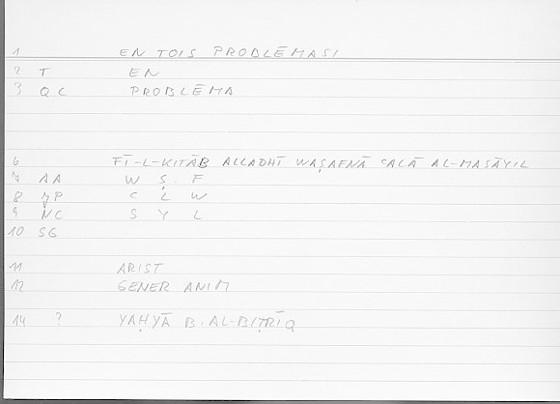 1 EN TOIS PROBLĒMASI
2 T EN
3 QC PROBLĒMA
6 FĪ-L-KITĀB ALLADHĪ WAṢAFNĀ CALĀ AL-MASĀYIL
7 AA W Ṣ F
8 P C L W
9 NC S Y L
10 SG
11 ARIST
12 GENER ANIM
14 ? YAḤYĀ B. AL-BIṬRĪQ